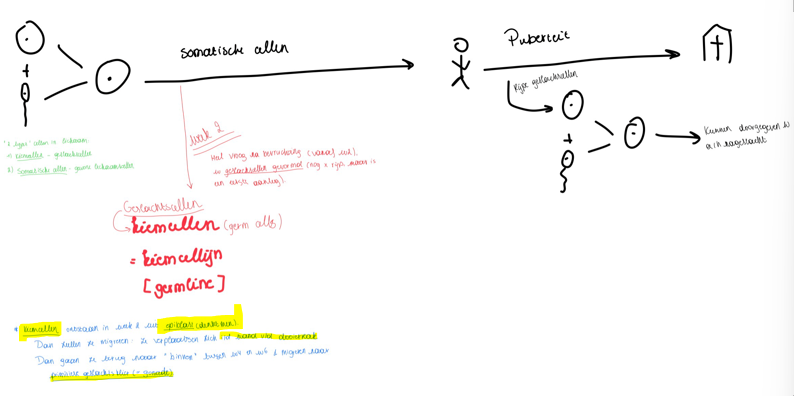 somatische cellen
Puberteit
Rijpe geslachtscellen
Kunnen doorgegeven w
a/h nageslacht
week 2
Heel vroeg na bevruchting (vanaf w2),
geslachtscellen gevormd (nog n rijp, maar is
een eerste aanleg).
"2 types" cellen in lichaam
1) Kiemcellen - geslachtscellen
2) Somatische cellen - gewone lichaamscellen
Geslachtscellen
kiemcellen (germ cells)
= kiemcellijn
[germline]
* Kiemcellen ontstaan in week 2 uit epiblast
Dan zullen ze migreren: ze verplaatsen zich
Dan gaan ze terug naar "binnen" tussen w4 en w6 & migreren naar
primitieve geslachtsklier (= gonade)